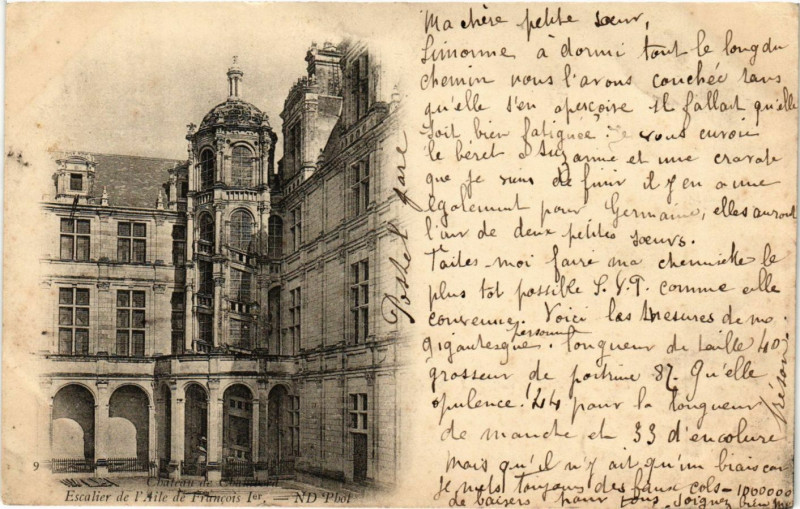 Ma chère petite sœur,
Simonne à dormi tout le long du
chemin nous l'avons couchée sans
qu'elle s'en aperçoive il fallait qu'elle
soit bien fatiguée. Je vous envoie
le béret à Suzanne et une cravate
que je viens de finir il y en a une
également pour Germaine, elles auront
l'air de deux petites sœurs.
Faites-moi faire ma chemisette le
plus tot possible S.V.P. comme elle
convenue. Voici les mesures de ma
gigantesque personne. longueur de taille 40
grosseur de poitrine 87. Qu'elle
opulence! 44 pour la longueur
de manche et 33 d'encolure
mais qu'il n'y ait qu'un biais car
Je mets toujours des faux cols - 1000000
de baisers pour tous. Soignez bien
9
Château de Chambord
Escalier de l'Aile de François Ier. — ND Phot